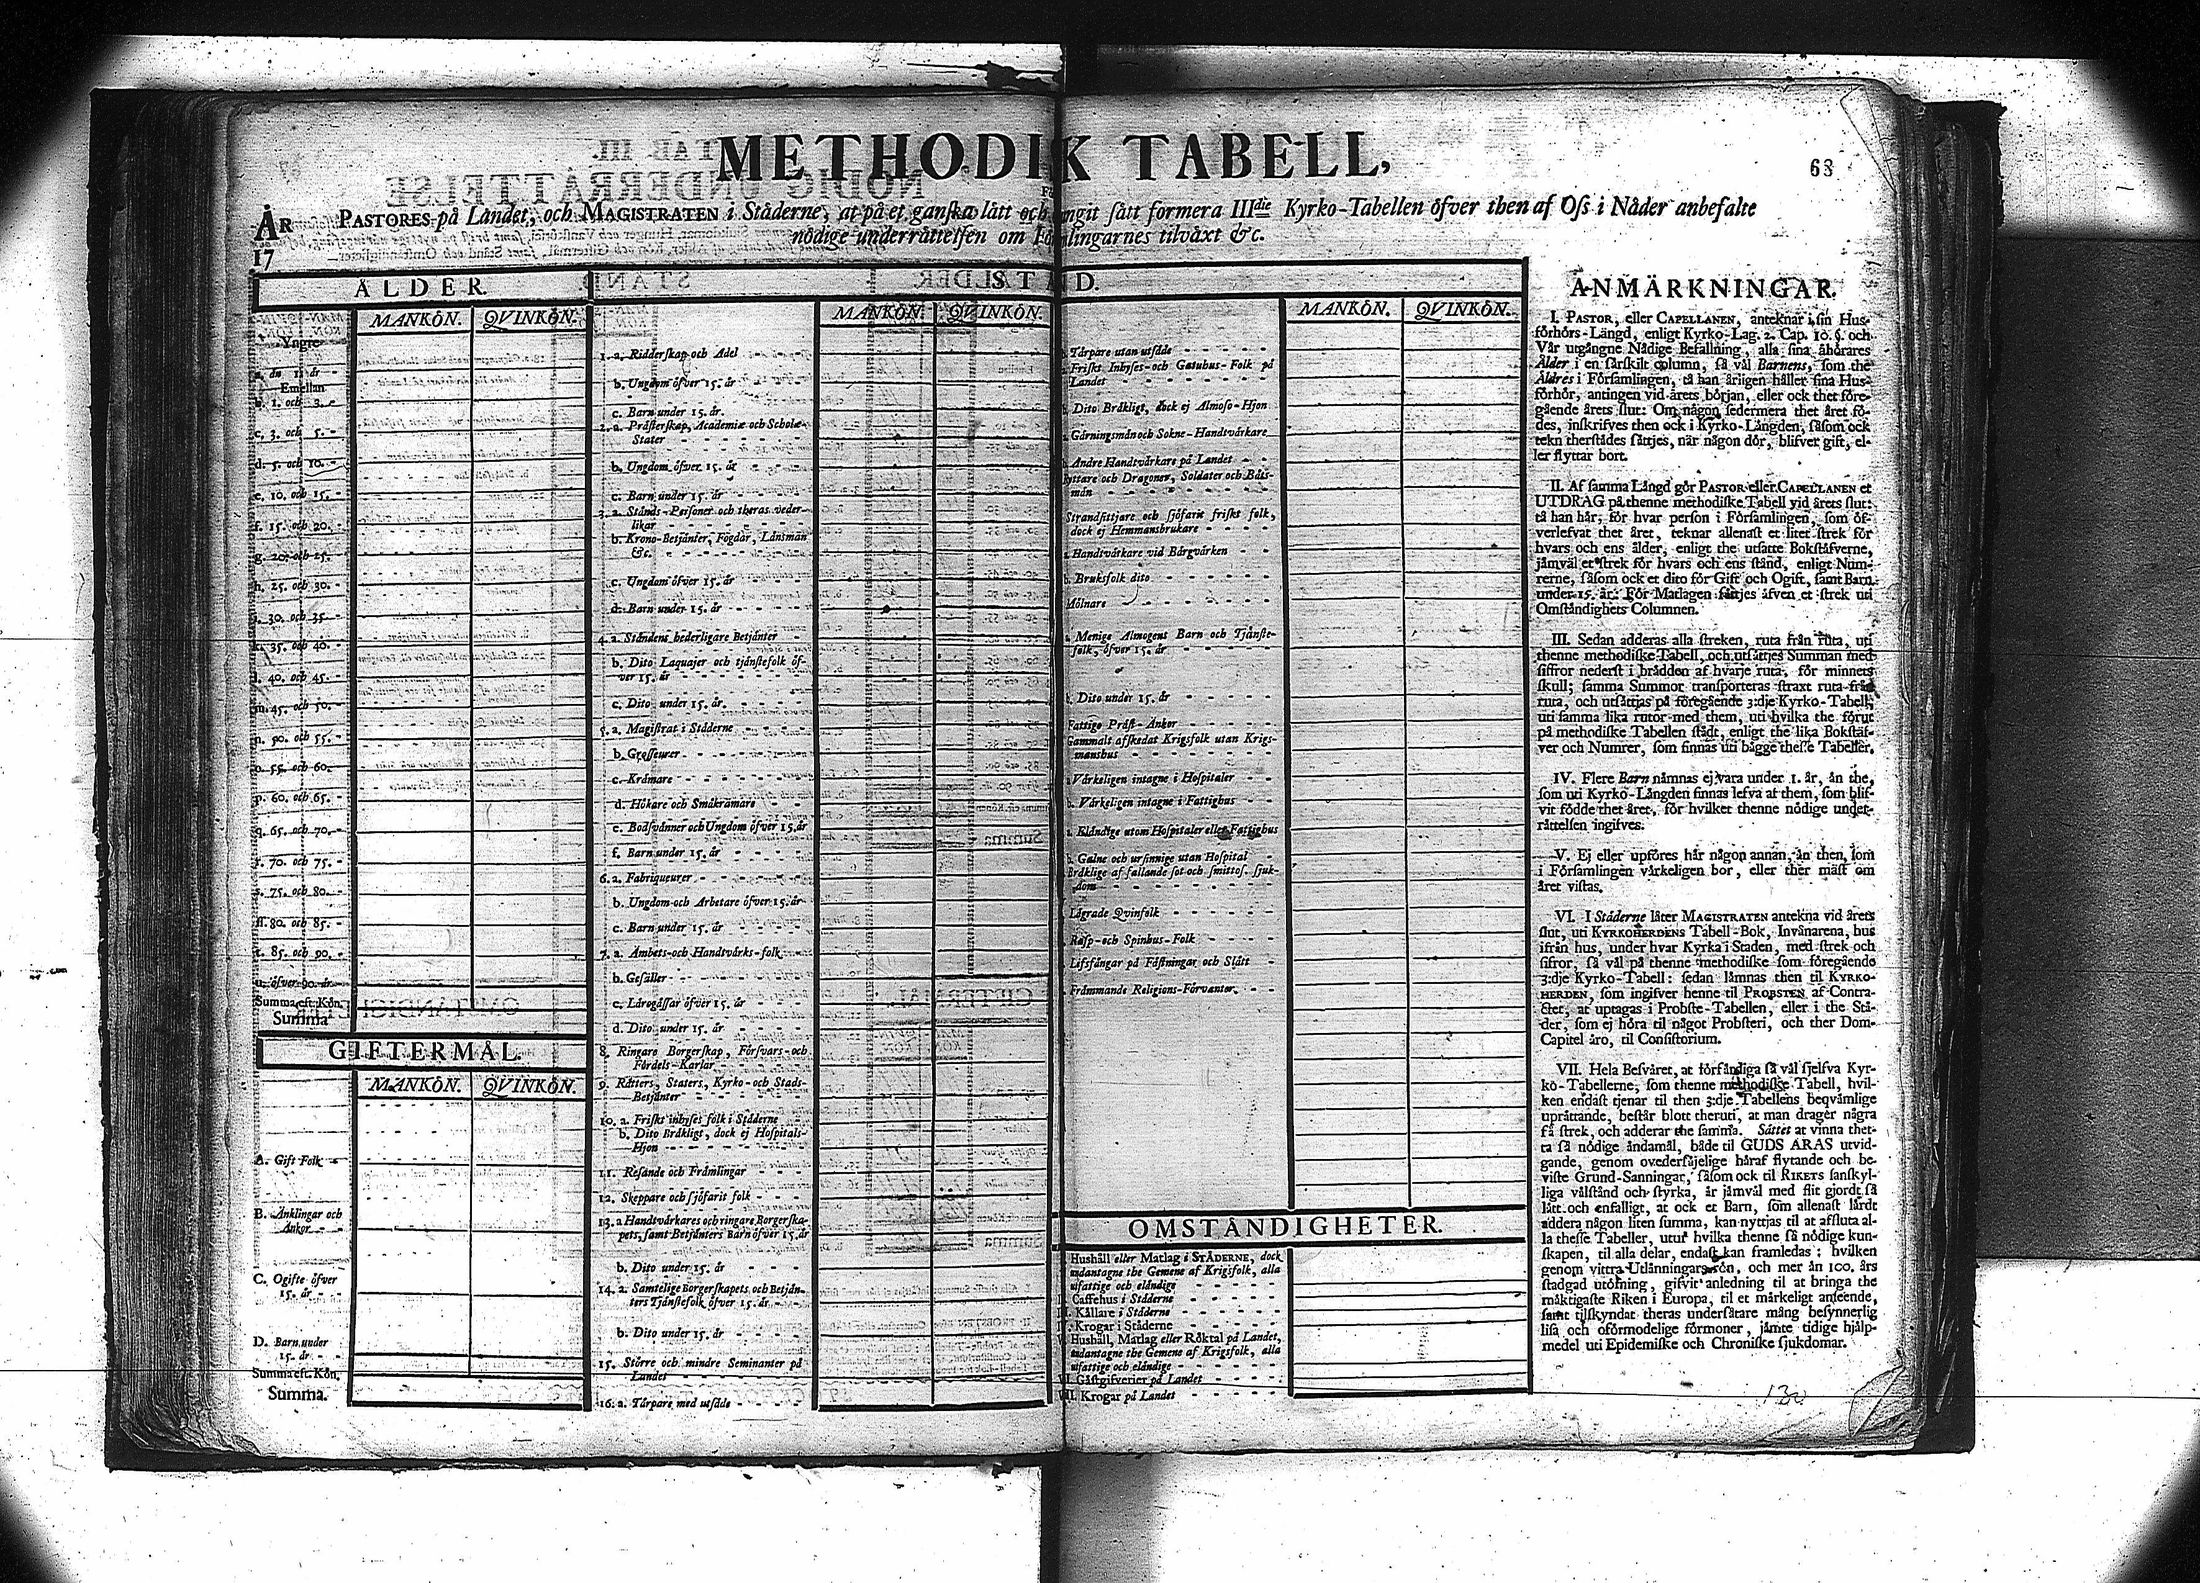 METHODISK TABELL,
68
PASTORES på Landet, och MAGISTRATEN i Ståderne, at på et ganska lått och sått formera IIIdie Kyrko-Tabellen öfver then af Oss i Nåder anbefalte
nödige underråttelsen om tilvåxt &c.
ÅR
17
ÅLDER.
MANKÖN. QVINKÖN.
Yngre
a. ån 1. år
Emellan
b. 1. och 3.
c. 3. och 5.
d. 5. och 10.
e. 10. och 15.
f. 15. och 20.
g. 20. och 25.
h. 25. och 30.
i. 30. och 35.
k. 35. och 40.
l. 40. och 45.
m. 45. och 50.
n. 50. och 55.
o. 55. och 60.
p. 60. och 65.
q. 65. och 70.
r. 70. och 75.
s. 75. och 80.
ſſ. 80. och 85.
t. 85. och 90.
u. öfver 90. år
Summa eft. Kön.
Summa
GIFTERMÅL.
MANKÖN. QVINKÖN.
A. Gift Folk
B. Ånklingar och
Ånkor
C. Ogifte öfver
15. år
D. Barn under
15. år
Summa eft. Kön.
Summa.
STÅND.
MANKÖN. QVINKÖN.
1. a. Ridderſkap och Adel
b. Ungdom öfver 15. år
c. Barn under 15. år.
2. a. Pråſterſkap, Academiæ och Scholæ-
Stater
b. Ungdom öfver 15. år
c. Barn under 15. år
3. a. Stånds-Perſoner och theras veder-
likar
b. Krono-Betjånter, Fogdar, Lånsmån
&c.
c. Ungdom öfver 15. år
d. Barn under 15. år
4. a. Ståndens hederligare Betjånter
b. Dito Laquajer och tjånſtefolk öf-
ver 15. år
c. Dito under 15. år.
5. a. Magiſtrat i Ståderne
b. Groſſeurer
c. Kråmare
d. Hökare och Småkråmare
e. Bodſvånner och Ungdom öfver 15. år
f. Barn under 15. år
6. a. Fabriqueurer
b. Ungdom och Arbetare öfver 15. år
c. Barn under 15. år
7. a. Åmbets-och Handtvårks-folk
b. Geſåller
c. Lårogåſſar öfver 15. år
d. Dito under 15. år
8. Ringare Borgerſkap, Förſvars-och
Fördels-Karlar
9. Råtters, Staters, Kyrko-och Stads-
Betjånter
10. a. Friſkt inhyſes folk i Ståderne
b. Dito Bråkligt, dock ej Hoſpitals-
Hjon
11. Reſande och Fråmlingar
12. Skeppare och ſjöfarit folk
13. a Handtvårkares och ringare Borgerſka-
pets, ſamt Betjånters Barn öfver 15. år
b. Dito under 15. år
14. a. Samtelige Borgerſkapets och Betjån-
ters Tjånſtefolk öfver 15. år
b. Dito under 15. år
15. Större och mindre Seminanter på
Landet
16. a. Tårpare med utſåde
MANKÖN. QVINKÖN.
Tårpare utan utſåde
Friſkt Inhyſes-och Gatuhus-Folk på
Landet
Dito Bråkligt, dock ej Almoſo-Hjon
Gårningsmån och Sokne-Handtvårkare
Andre Handtvårkare på Landet
Ryttare och Dragoner, Soldater och Båts-
mån
Strandſittjare och ſjöfarit friſkt folk,
dock ej Hemmansbrukare
Handtvårkare vid Bårgvårken
Bruksfolk dito
Mölnare
Menige Almogens Barn och Tjånſte-
folk, öfver 15. år
Dito under 15. år
Fattige Pråſt-Ånkor
Gammalt afſkedat Krigsfolk utan Krigs-
manshus
Vårkeligen intagne i Hoſpitaler
Vårkeligen intagne i Fattighus
Elåndige utom Hoſpitaler eller Fattighus
Galne och urſinnige utan Hoſpital
Bråklige af fallande ſot och ſmittoſ. ſjuk-
dom
Lågrade Qvinfolk
Raſp-och Spinhus-Folk
Lifsfångar på Fåſtningar och Slått
Fråmmande Religions-Förvanter
OMSTÅNDIGHETER.
Hushåll eller Matlag i STÅDERNE, dock
undantagne the Gemene af Krigsfolk, alla
utfattige och elåndige
Caffehus i Ståderne
Kållare i Ståderne
Krogar i Ståderne
Hushåll, Matlag eller Röktal på Landet,
undantagne the Gemene af Krigsfolk, alla
utfattige och elåndige
Gåſtgifverier på Landet
Krogar på Landet
ANMÄRKNINGAR.
I. PASTOR, eller CAPELLANEN, anteknar i ſin Hus-
förhörs-Långd, enligt Kyrko-Lag. 2. Cap. 10. §. och
Vår utgångne Nådige Befallning, alla ſina åhörares
Ålder i en ſårſkilt column, ſå vål Barnens, ſom the
Åldres i Förſamlingen, tå han årligen håller ſina Hus-
förhör, antingen vid årets början, eller ock thet före-
gående årets ſlut: Om någon ſedermera thet året fö-
des, inſkrifves then ock i Kyrko-Långden, ſåſom ock
tekn therſtådes ſåttjes, når någon dör, blifver gift, el-
ler flyttar bort.
II. Af ſamma Långd gör PASTOR eller CAPELLANEN et
UTDRAG på thenne methodiſke Tabell vid årets ſlut:
tå han hår, för hvar perſon i Förſamlingen, ſom öf-
verlefvat thet året, teknar allenaſt et litet ſtrek för
hvars och ens ålder, enligt the utſatte Bokſtåfverne,
jåmvål et ſtrek för hvars och ens ſtånd, enligt Num-
rerne, ſåſom ock et dito för Gift och Ogift, ſamt Barn
under 15. år: För Matlagen ſåttjes åfven et ſtrek uti
Omſtåndighets Columnen.
III. Sedan adderas alla ſtreken, ruta från ruta, uti
thenne methodiſke Tabell, och utſåttjes Summan med
ſiffror nederſt i brådden af hvarje ruta, för minnets
ſkull; ſamma Summor tranſporteras ſtraxt ruta från
ruta, och utſåttjas på föregående 3:dje Kyrko-Tabell,
uti ſamma lika rutor med them, uti hvilka the förut
på methodiſke Tabellen ſtådt, enligt the lika Bokſtåf-
ver och Numrer, ſom finnas uti bågge theſſe Tabeller.
IV. Flere Barn nåmnas ej vara under 1. år, ån the,
ſom uti Kyrko-Långden finnas lefva af them, ſom blif-
vit födde thet året, för hvilket thenne nödige under-
råttelſen ingifves.
V. Ej eller upföres hår någon annan, ån then, ſom
i Förſamlingen vårkeligen bor, eller ther måſt om
året viſtas.
VI. I Ståderne låter MAGISTRATEN antekna vid årets
ſlut, uti KYRKOHERDENS Tabell-Bok, Invånarena, hus
ifrån hus, under hvar Kyrka i Staden, med ſtrek och
ſifror, ſå vål på thenne methodiſke ſom föregående
3:dje Kyrko-Tabell: ſedan låmnas then til KYRKO-
HERDEN, ſom ingifver henne til PROBSTEN af Contra-
ctet, at uptagas i Probſte-Tabellen, eller i the Stå-
der, ſom ej höra til något Probſteri, och ther Dom-
Capitel åro, til Conſiſtorium.
VII. Hela Beſvåret, at förfårdiga ſå vål ſjelfva Kyr-
ko-Tabellerne, ſom thenne methodiſke Tabell, hvil-
ken endaſt tjenar til then 3:dje Tabellens beqvåmlige
upråttande, beſtår blott theruti, at man drager några
få ſtrek, och adderar the ſamma. Såttet at vinna thet-
ta ſå nödige åndamål, både til GUDS ÅRAS utvid-
gande, genom ovederſåjelige håraf flytande och be-
viſte Grund-Sanningar, ſåſom ock til RIKETS ſanſkyl-
liga vålſtånd och ſtyrka, år jåmvål med flit gjordt ſå
lått och enfalligt, at ock et Barn, ſom allenaſt lårdt
addera någon liten ſumma, kan nyttjas til at affluta al-
la theſſe Tabeller, utur hvilka thenne ſå nödige kun-
ſkapen, til alla delar, endaſt kan framledas: hvilken
genom vittra Utlånningars rön, och mer ån 100. års
ſtadgad utöfning, gifvit anledning til at bringa the
måktigaſte Riken i Europa, til et mårkeligt anſeende,
ſamt tilſkyndat theras underſåtare mång beſynnerlig
liſa och oförmodelige förmoner, jåmte tidige hjålp-
medel uti Epidemiſke och Chroniſke ſjukdomar.
130